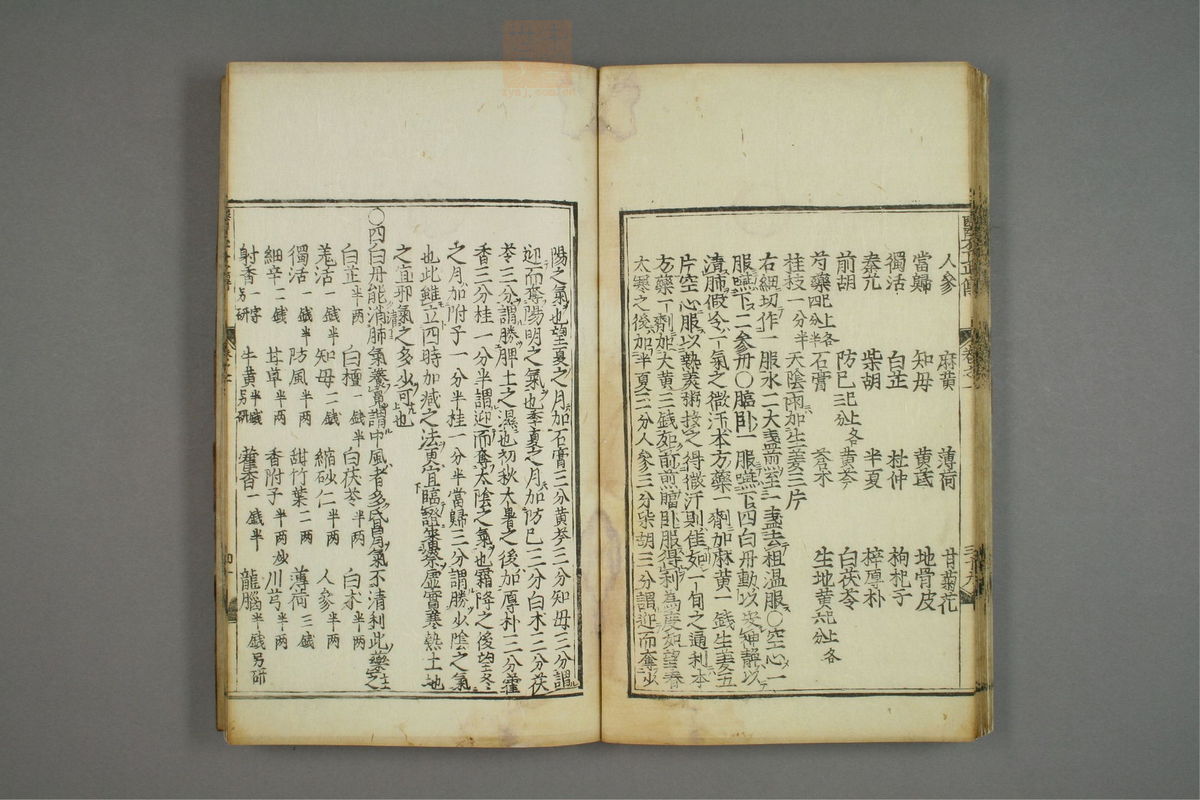 人參 麻黄 薄荷 甘菊花
當歸 知母 黄芪 地骨皮
獨活 白芷 杜仲 枸杞子
秦艽 柴胡 半夏 梓厚朴
前胡 防已 黄芩 白茯苓
芍藥 石膏 蒼朮 生地黄
桂枝一分半天陰雨加生姜三片
右細切作一服水二大盞煎至一盞去柤温服〇空心一
服嚥下二參丹〇臨卧一服嚥下四白丹動以安神靜以
清肺假令一氣之微汗本方藥一劑加麻黄一錢生姜五
片空心服以熱羹粥投之得微汗則佳如一旬之通利本
方藥一劑加大黄三錢如前煎臨卧服得利為度如望春
太寒之後加半夏三分人參三分柴胡三分謂迎而奪少
陽之氣也望夏之月加石膏三分黄芩三分知母三分謂
迎而奪陽明之氣也季夏之月加防已三分白朮三分茯
苓三分謂勝脾土之濕也初秋大暑之後加厚朴三分藿
香三分桂一分半謂迎而奪太陰之氣也霜降之後望冬
之月加附子一分半桂一分半當歸三分謂勝少陰之氣
也此雖立四時加減之法更宜臨證審察虚實寒熱土地
之宜邪氣之多少可也
〇四白丹能清肺氣養魂謂中風者多昏冒氣不清利此藥主之
白芷半两 白檀一錢半 白茯苓半两 白朮半两
羌活一錢半 知母二錢 縮砂仁半两 人參半两
獨活一錢半 防風半两 甜竹葉二两 薄荷三錢
細辛二錢 甘草半两 香附子半两炒 川芎半两
射香一字另研 牛黄半錢另研 藿香一錢半 龍腦半錢另研